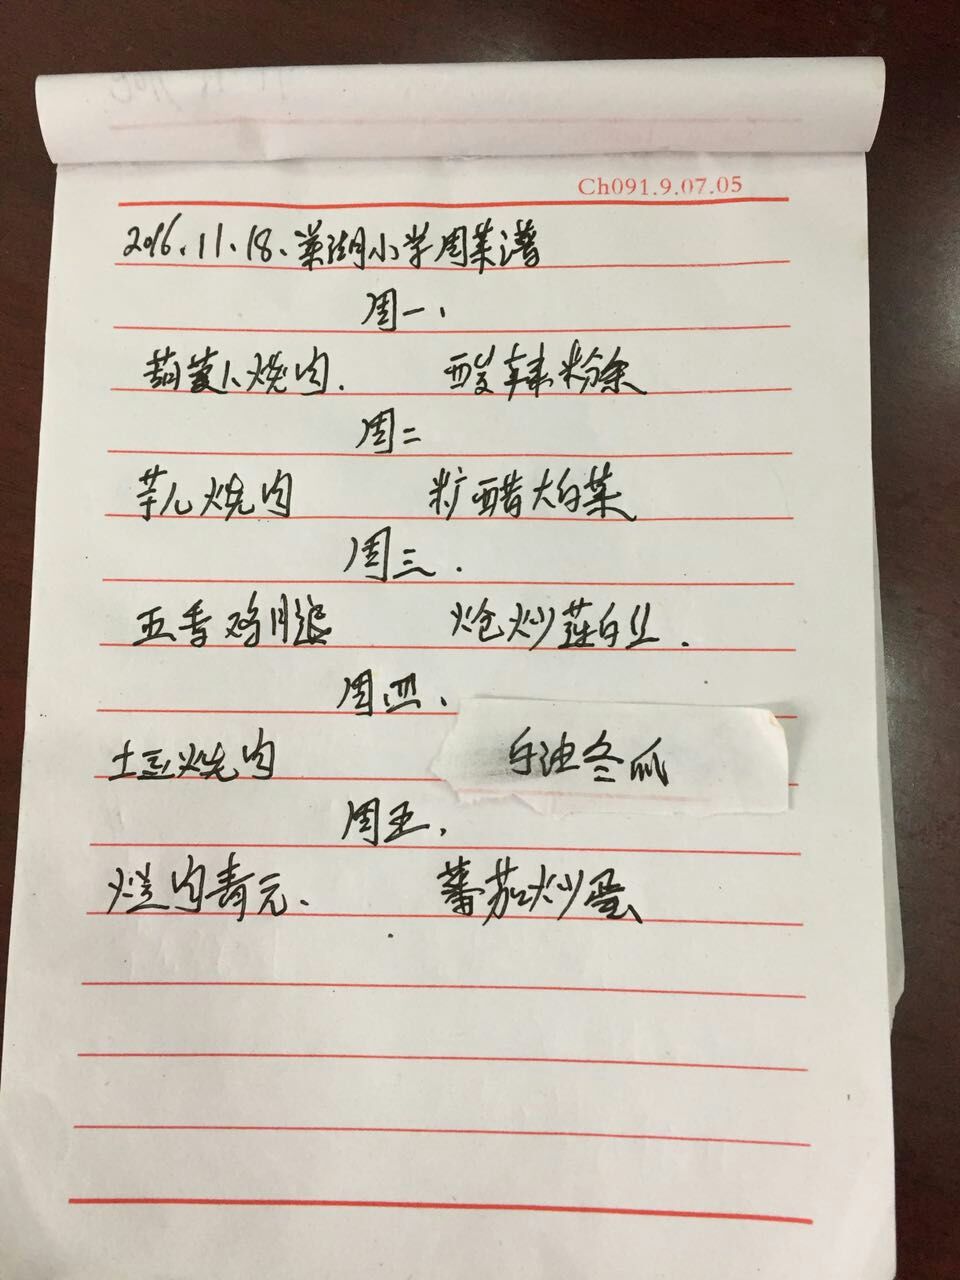 Ch091.9.07.05
2016.11.18.菜湖小学周菜谱
周一、
葫萝卜烧肉. 酸辣粉条
周二
芋儿烧肉 糖醋大白菜
周三.
五香鸡腿 炝炒莲白丝.
周四、
土豆烧肉 白油冬瓜
周五,
烂肉青元、 蕃茄炒蛋